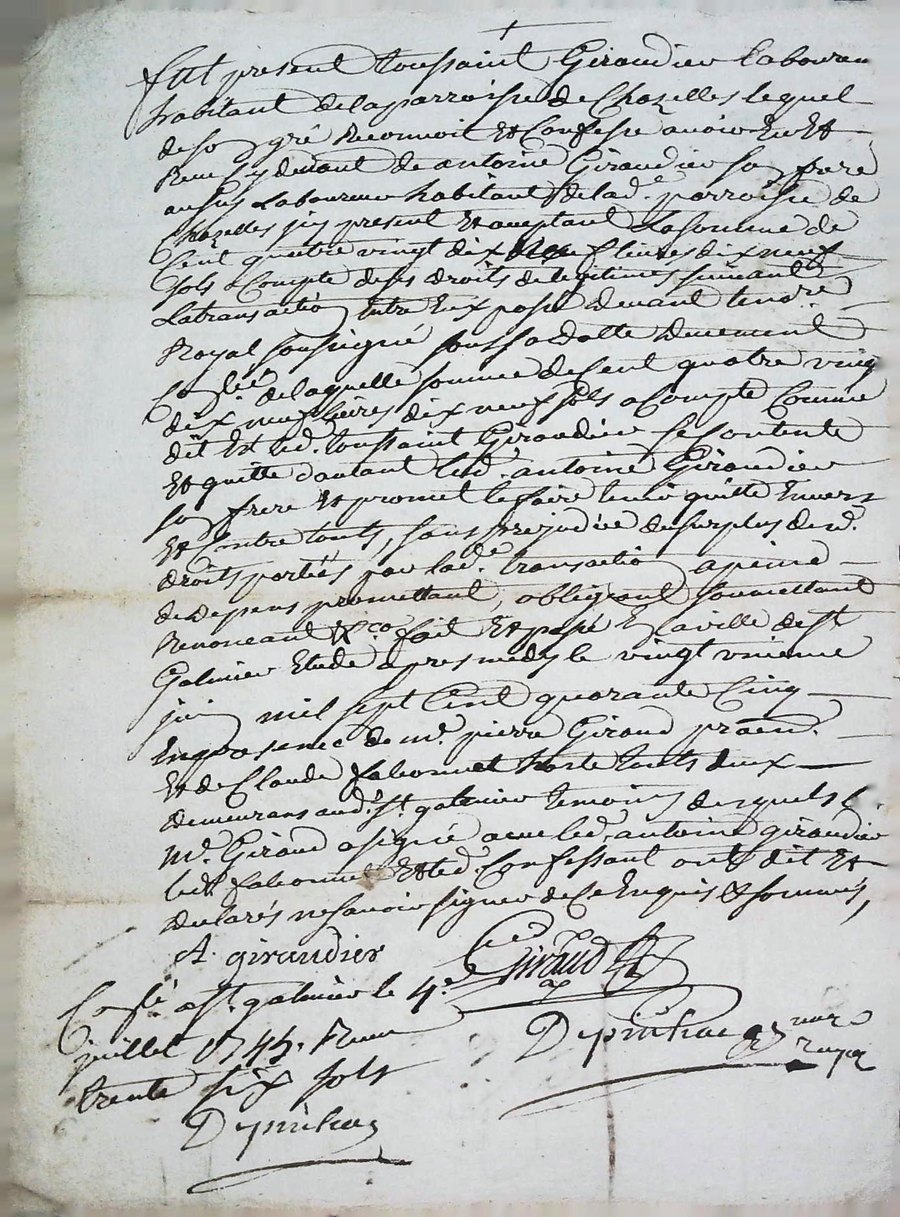 fut present toussaint Giraudier Laboureu
habitant de la parroisse de Chazelles lequel
de son gré Reconnoit Et Confesse avoir Eu Et
Receu cy devant de antoine Giraudier son frere
aussy Laboureur habitant de lad.e parroisse de
Chazelles icy present Et acceptant La somme de
Cent quatre vingt dix neuf livres dix neuf
sols a Compte de ses droits de legitimes suivant
La transaction Entre Eux passée devant le no.re
Royal soussigné sous sa datte duement
Con.lée de laquelle somme de Cent quatre vingt
dix neuf livres dix neuf sols a Compte Comme
dit Est led. toussaint Giraudier se contente
Et quitte d'autant led. antoine Giraudier
son frere Et promet le faire tenir quitte Envers
Et Contre touts, sans prejudice du surplus desd.
droits portés par lad.e transaction a peine
de Depens promettant, obligeant soumettant
Renonceant &ca fait Et passé En la ville de St
Galmier Etude apres midy le vingt
juin mil sept Cent quarante Cinq
En presence de m.e pierre Giraud praen.
Et de Claude fabonnet touts deux
demeurans aud. St. galmier temoins desquels
m.e Giraud a signé avec led. antoine giraudier
led. fabonnet Et led. Confessant ont dit Et
declarés ne savoir signer de Ce Enquis & sommés,
A. giraudier
Giraud
Con.lé a St. galmier le 4.e
juillet 1745. Receu
trente six sols
no.re
royal